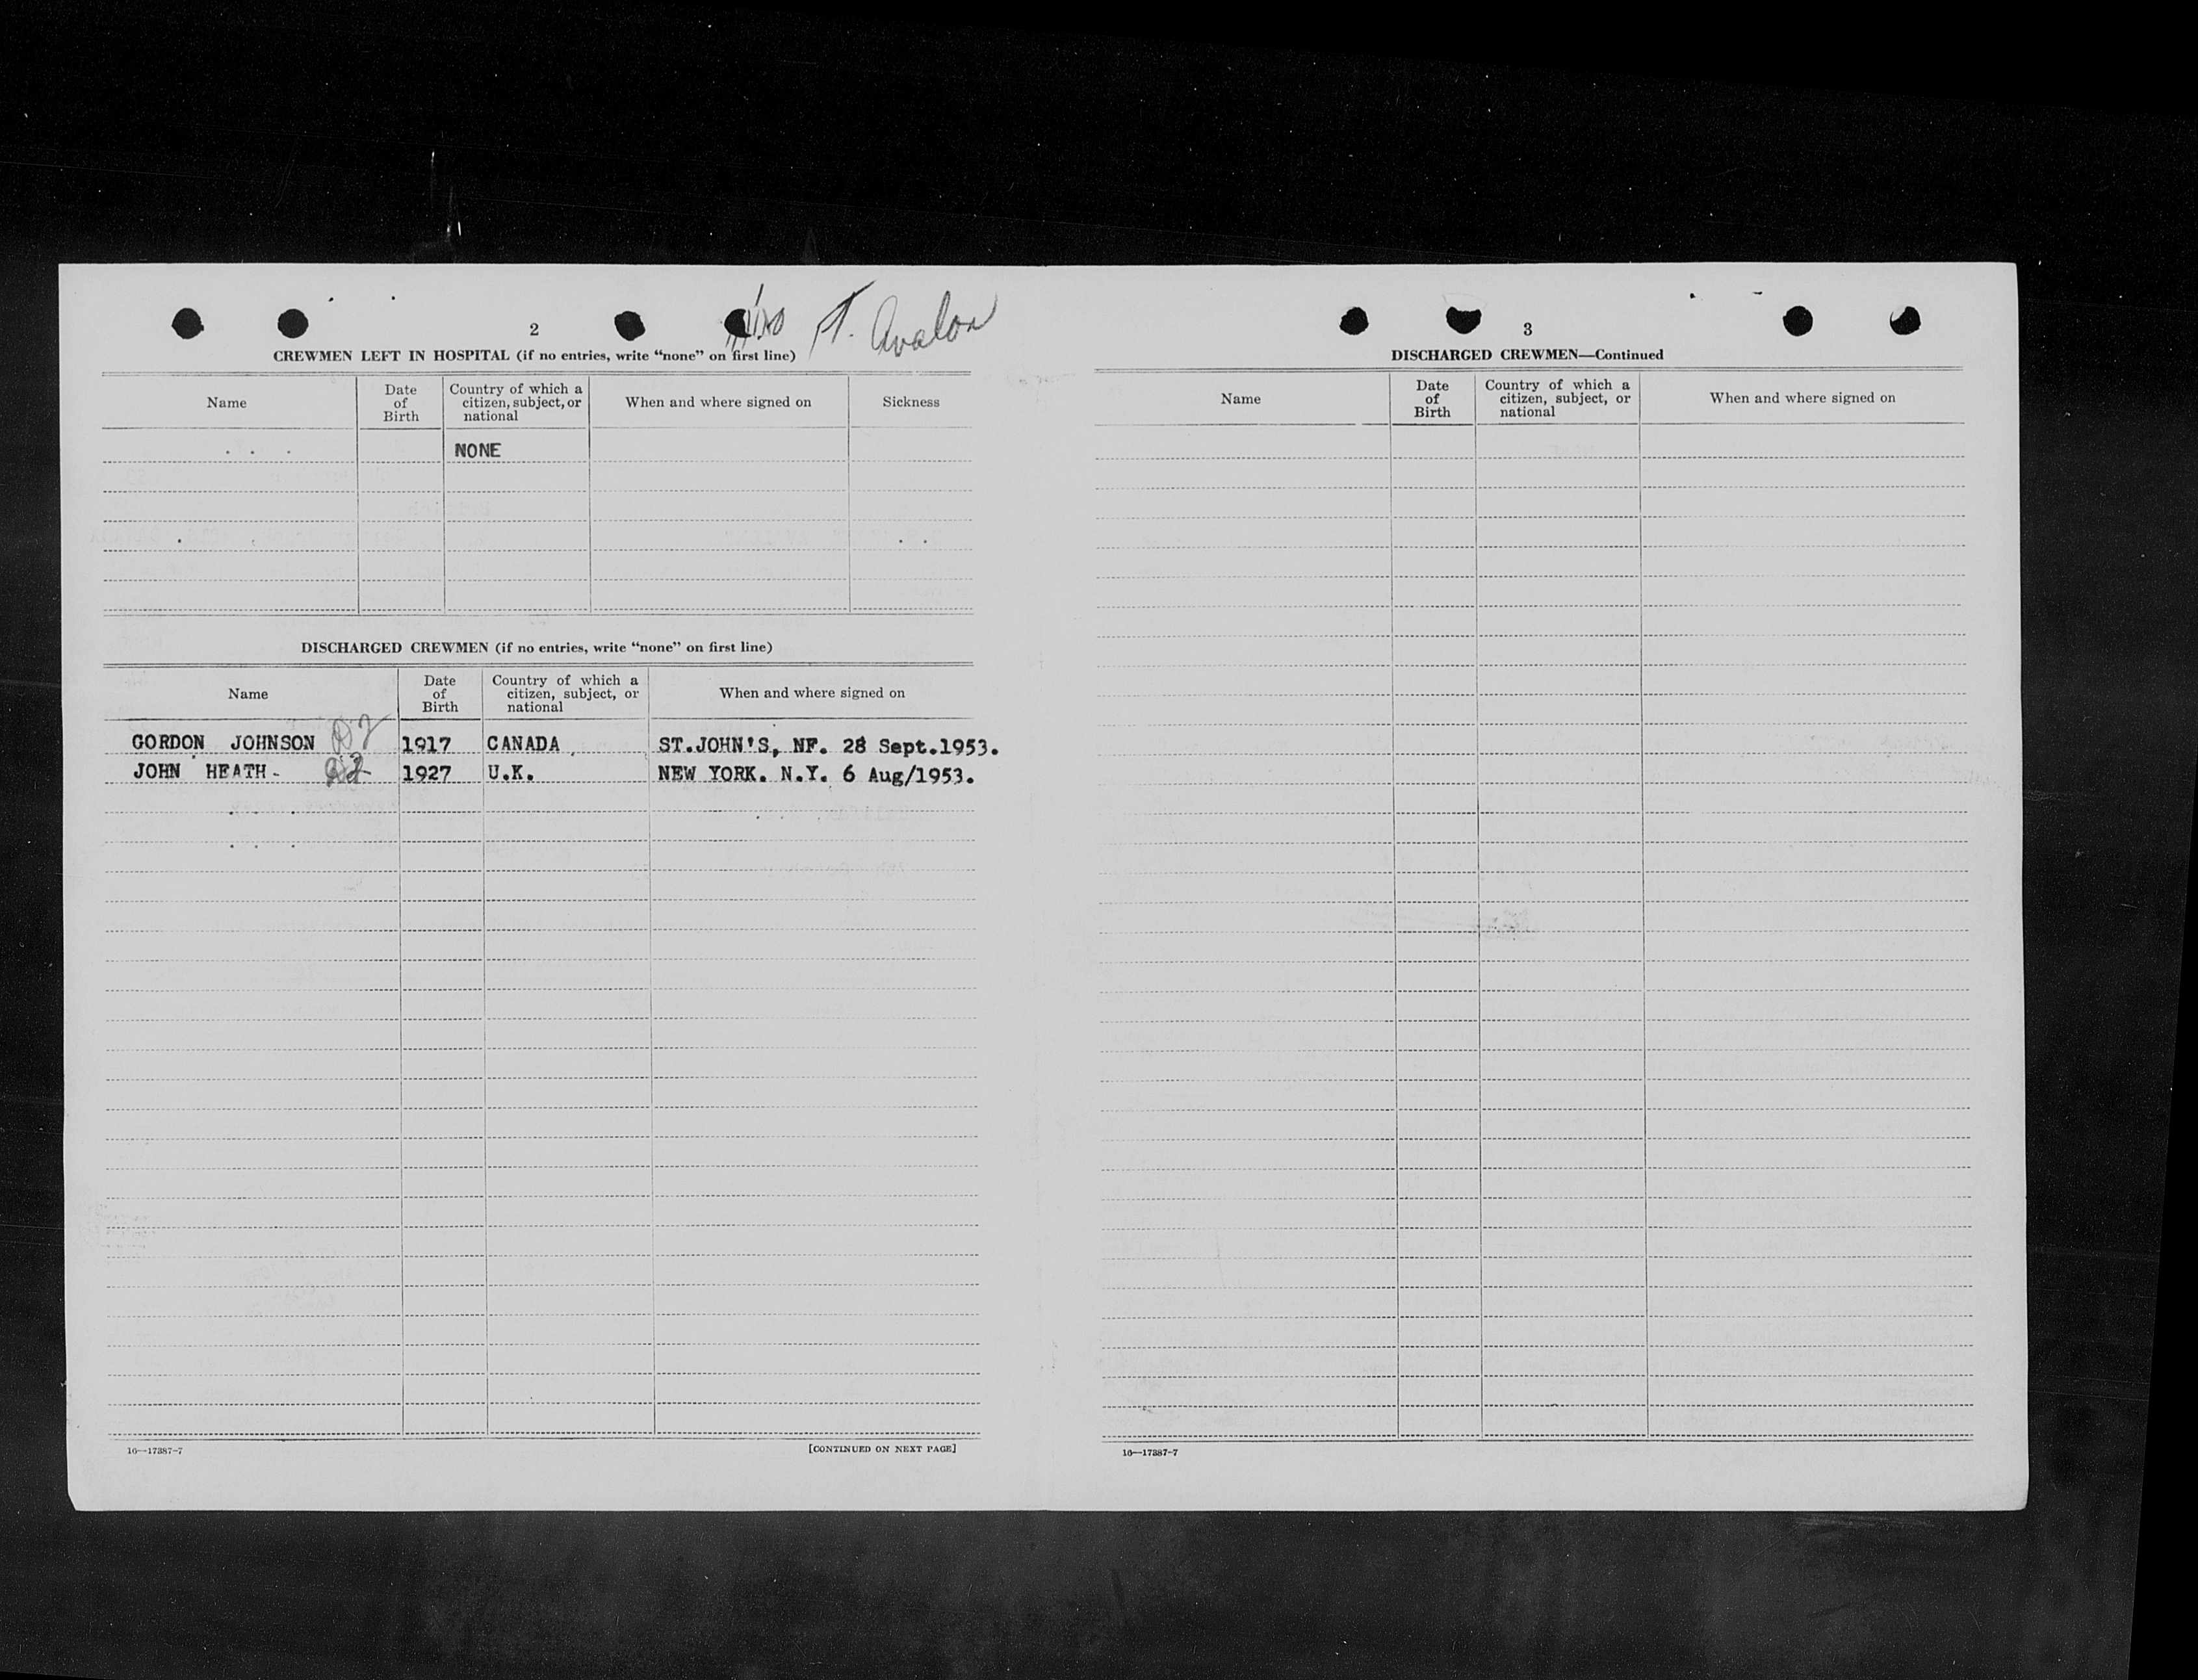 2
Ft. Avalon
CREWMEN LEFT IN HOSPITAL (if no entries, write “none” on first line)
Name
Date of Birth
Country of which a citizen, subject, or national
When and where signed on
Sickness
NONE
DISCHARGED CREWMEN (if no entries, write “none” on first line)
Name
Date of Birth
Country of which a citizen, subject, or national
When and where signed on
GORDON JOHNSON 1917 CANADA ST.JOHN'S, NF. 28 Sept.1953.
JOHN HEATH- 1927 U.K. NEW YORK. N.Y. 6 Aug/1953.
16—17387-7
[CONTINUED ON NEXT PAGE]
3
DISCHARGED CREWMEN—Continued
Name
Date of Birth
Country of which a citizen, subject, or national
When and where signed on
16—17387-7